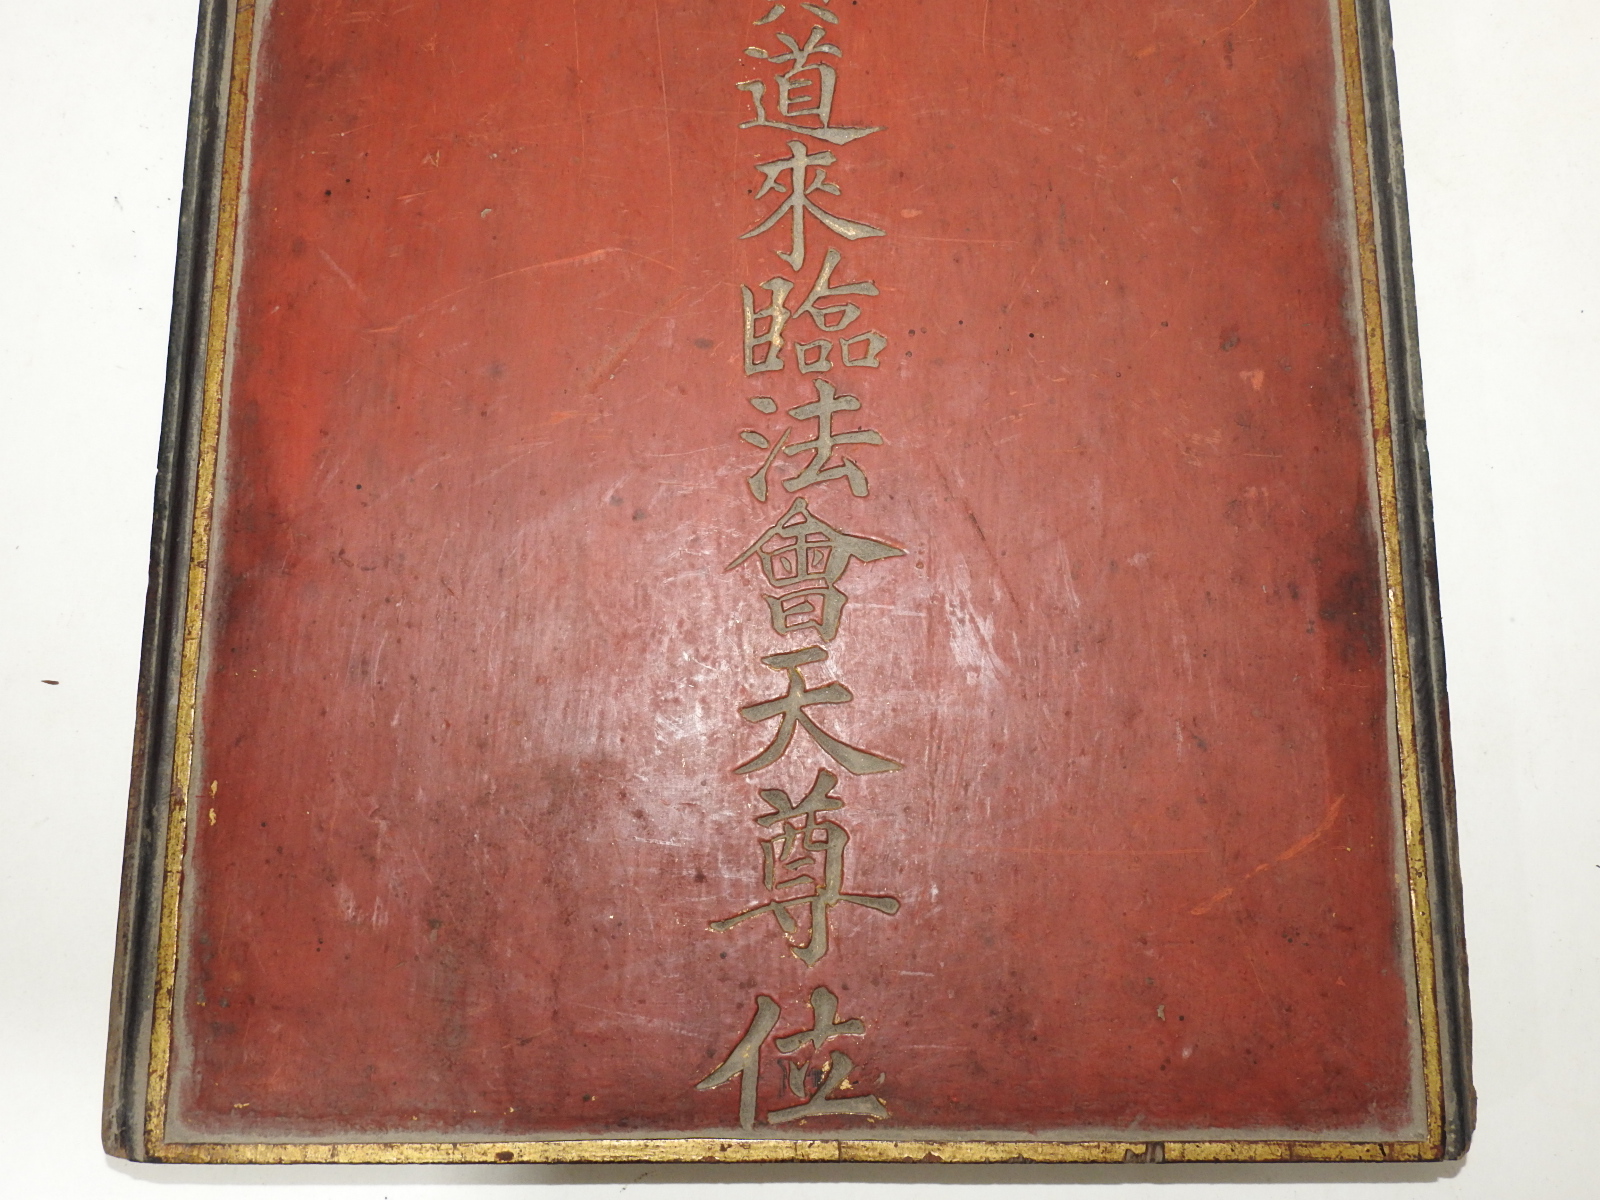 道來臨法會天尊位